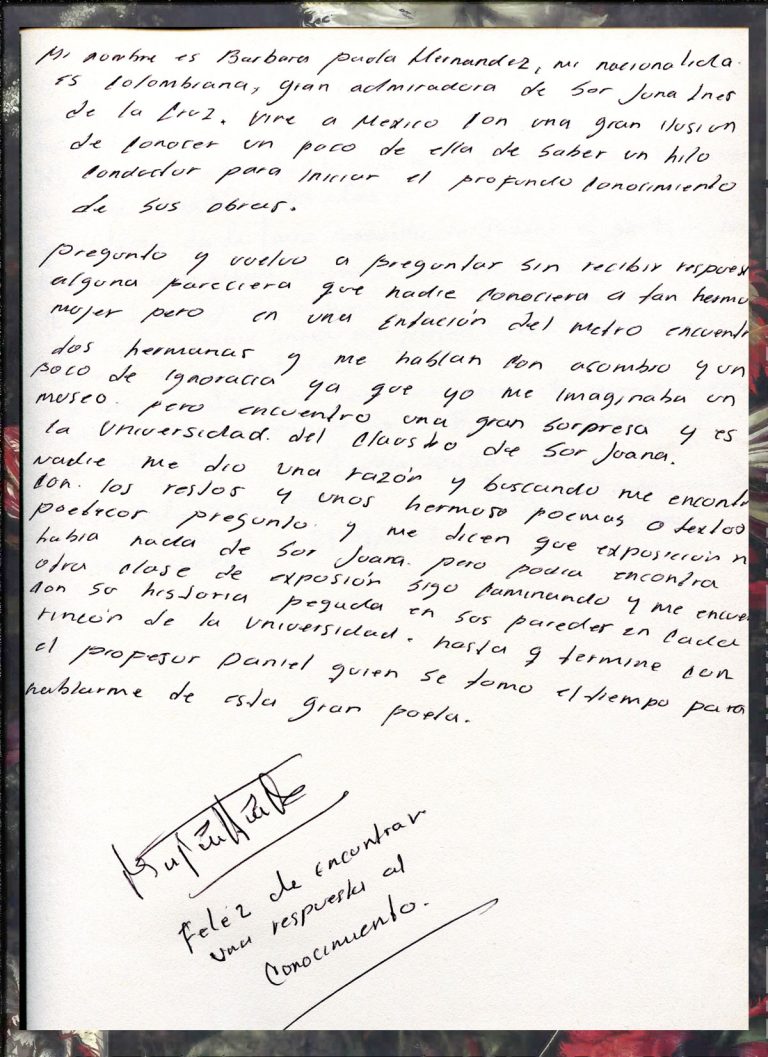 Mi nombre es Barbara paola Hernandez, mi nacionalida
es Colombiana, gran admiradora de Sor Juna Ines
de la Cruz. Vine a Mexico Con una gran ilusion
de Conocer un poco de ella de Saber un hilo
Conductor para iniciar el profundo Conocimiento
de Sus obras.
pregunto y vuelvo a preguntar Sin recibir respues
alguna pareciera que nadie Conociera a tan hermo
mujer pero en una Entación del metro encuentr
dos hermanas y me hablan Con asombro y un
poco de Ignoracia ya que yo me Imaginaba un
museo. pero encuentro una gran Sorpresa y es
la Universidad. del Claustro de Sor Juana.
Nadie me dio una razón y buscando me encontr
Con. los restos y unos hermoso poemas o textos
poeticos pregunto. y me dicen que exposición n
habia nada de Sor Juana. pero podia encontra
otra Clase de exposión Sigo Caminando y me encue
Con Su historia pegada en Sus pareder en Cada
rincón de la Universidad. hasta q termine Con
el profesor Daniel quien se tomo el tiempo para
hablarme de esta gran poeta.
Feléz de encontrar
una respuesta al
Conocimiento.